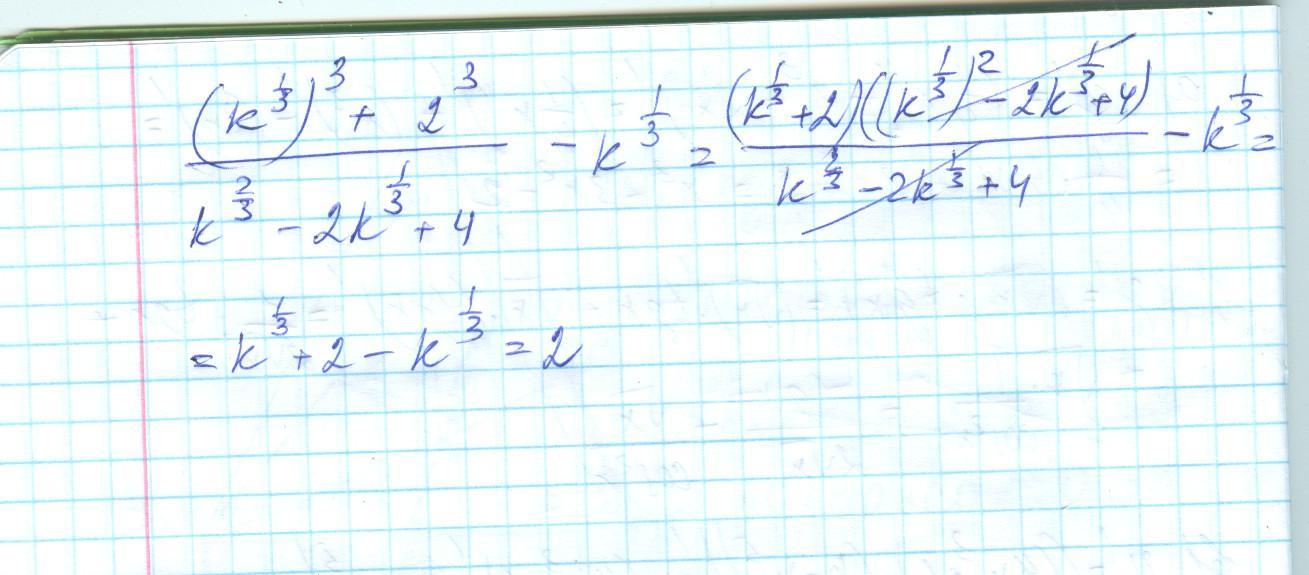 ((k^(1/3))^3 + 2^3)/(k^(2/3) - 2k^(1/3) + 4) - k^(1/3) = ((k^(1/3) + 2)((k^(1/3))^2 - 2k^(1/3) + 4))/(k^(2/3) - 2k^(1/3) + 4) - k^(1/3) =
= k^(1/3) + 2 - k^(1/3) = 2